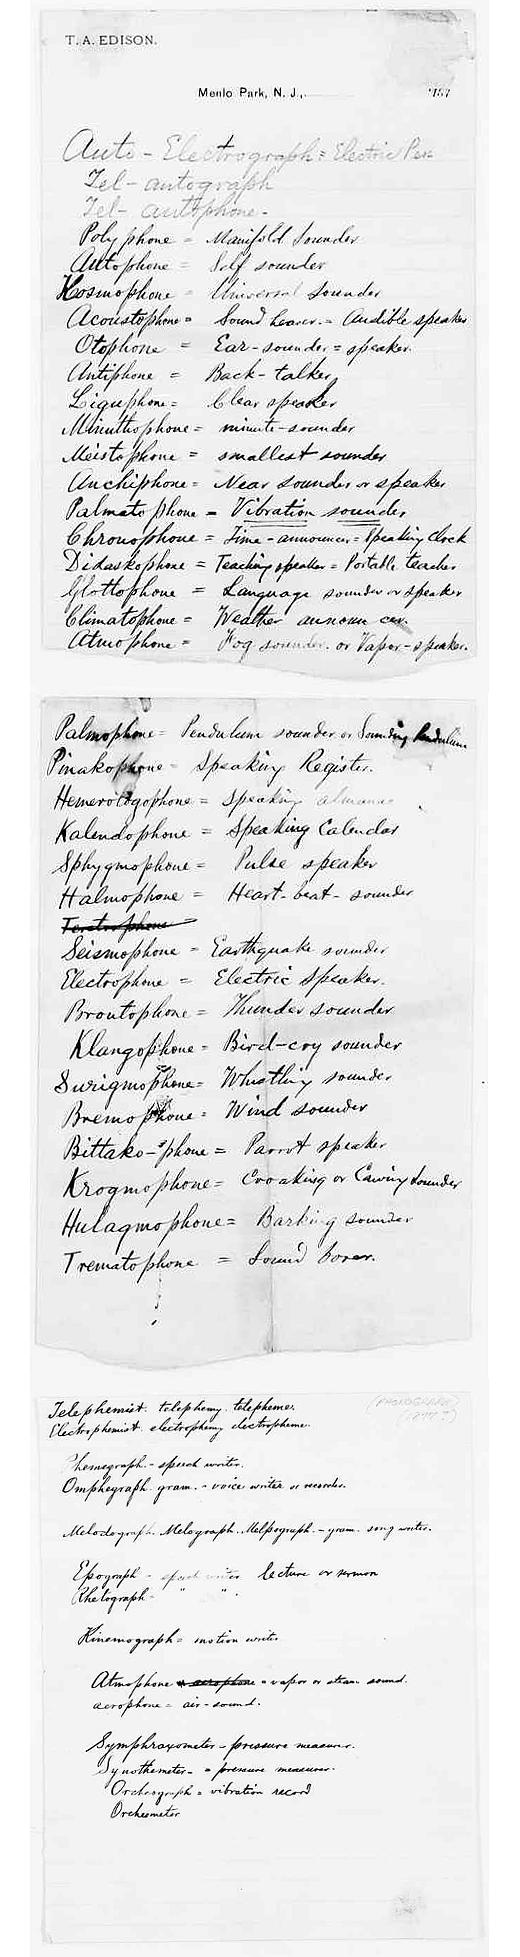 T. A. EDISON.
Menlo Park, N. J., 187
Auto - Electrograph = Electric Pen
Tel - autograph
Tel - autophone -
Polyphone = Manifold Sounder
Autophone = Self sounder
Kosmophone = Universal Sounder
Acoustophone = Sound hearer = Audible speaker
Otophone = Ear - sounder = speaker.
Antiphone = Back - talker
Liguphone = Clear speaker
Minuttophone = minute - sounder
Meistophone = smallest sounder
Anchiphone = Near sounder or speaker
Palmatophone = Vibration sounder
Chronophone = Time - announcer = Speaking clock
Didaskophone = Teaching speaker = Portable teacher
Glottophone = Language sounder or speaker
Climatophone = Weather announcer.
Atmophone = Fog sounder. or Vapor - speaker.
Palmophone = Pendulum sounder or Sounding Pendulum
Pinakophone = Speaking Register.
Hemerologophone = speaking almanac
Kalendophone = Speaking Calendar
Sphygmophone = Pulse speaker
Halmophone = Heart - beat - sounder
Seismophone = Earthquake sounder
Electrophone = Electric speaker.
Brontophone = Thunder sounder
Klangophone = Bird - cry sounder
Surigmophone = Whistling sounder
Bremophone = Wind sounder
Bittako - phone = Parrot speaker
Krogmophone = Croaking or Cawing Sounder
Hulagmophone = Barking sounder
Trematophone = Sound borer.
(PHONOGRAPH)
(1877?)
Telephemist. telephemy. telepheme.
Electrophemist. electrophemy electropheme.
Phemegraph. - speech writer.
Omphegraph. gram. - voice writer or recorder.
Melodograph. Melograph. Melpograph. - gram. song writer.
Epograph - speech writer lecture or sermon
Rhetograph - " " .
Kinemograph = motion writer
Atmophone or aerophone = vapor or steam sound.
aerophone = air - sound.
Symphraxometer - pressure measurer.
Synothemeter - = pressure measurer.
Orchesgraph = vibration record
Orcheometer